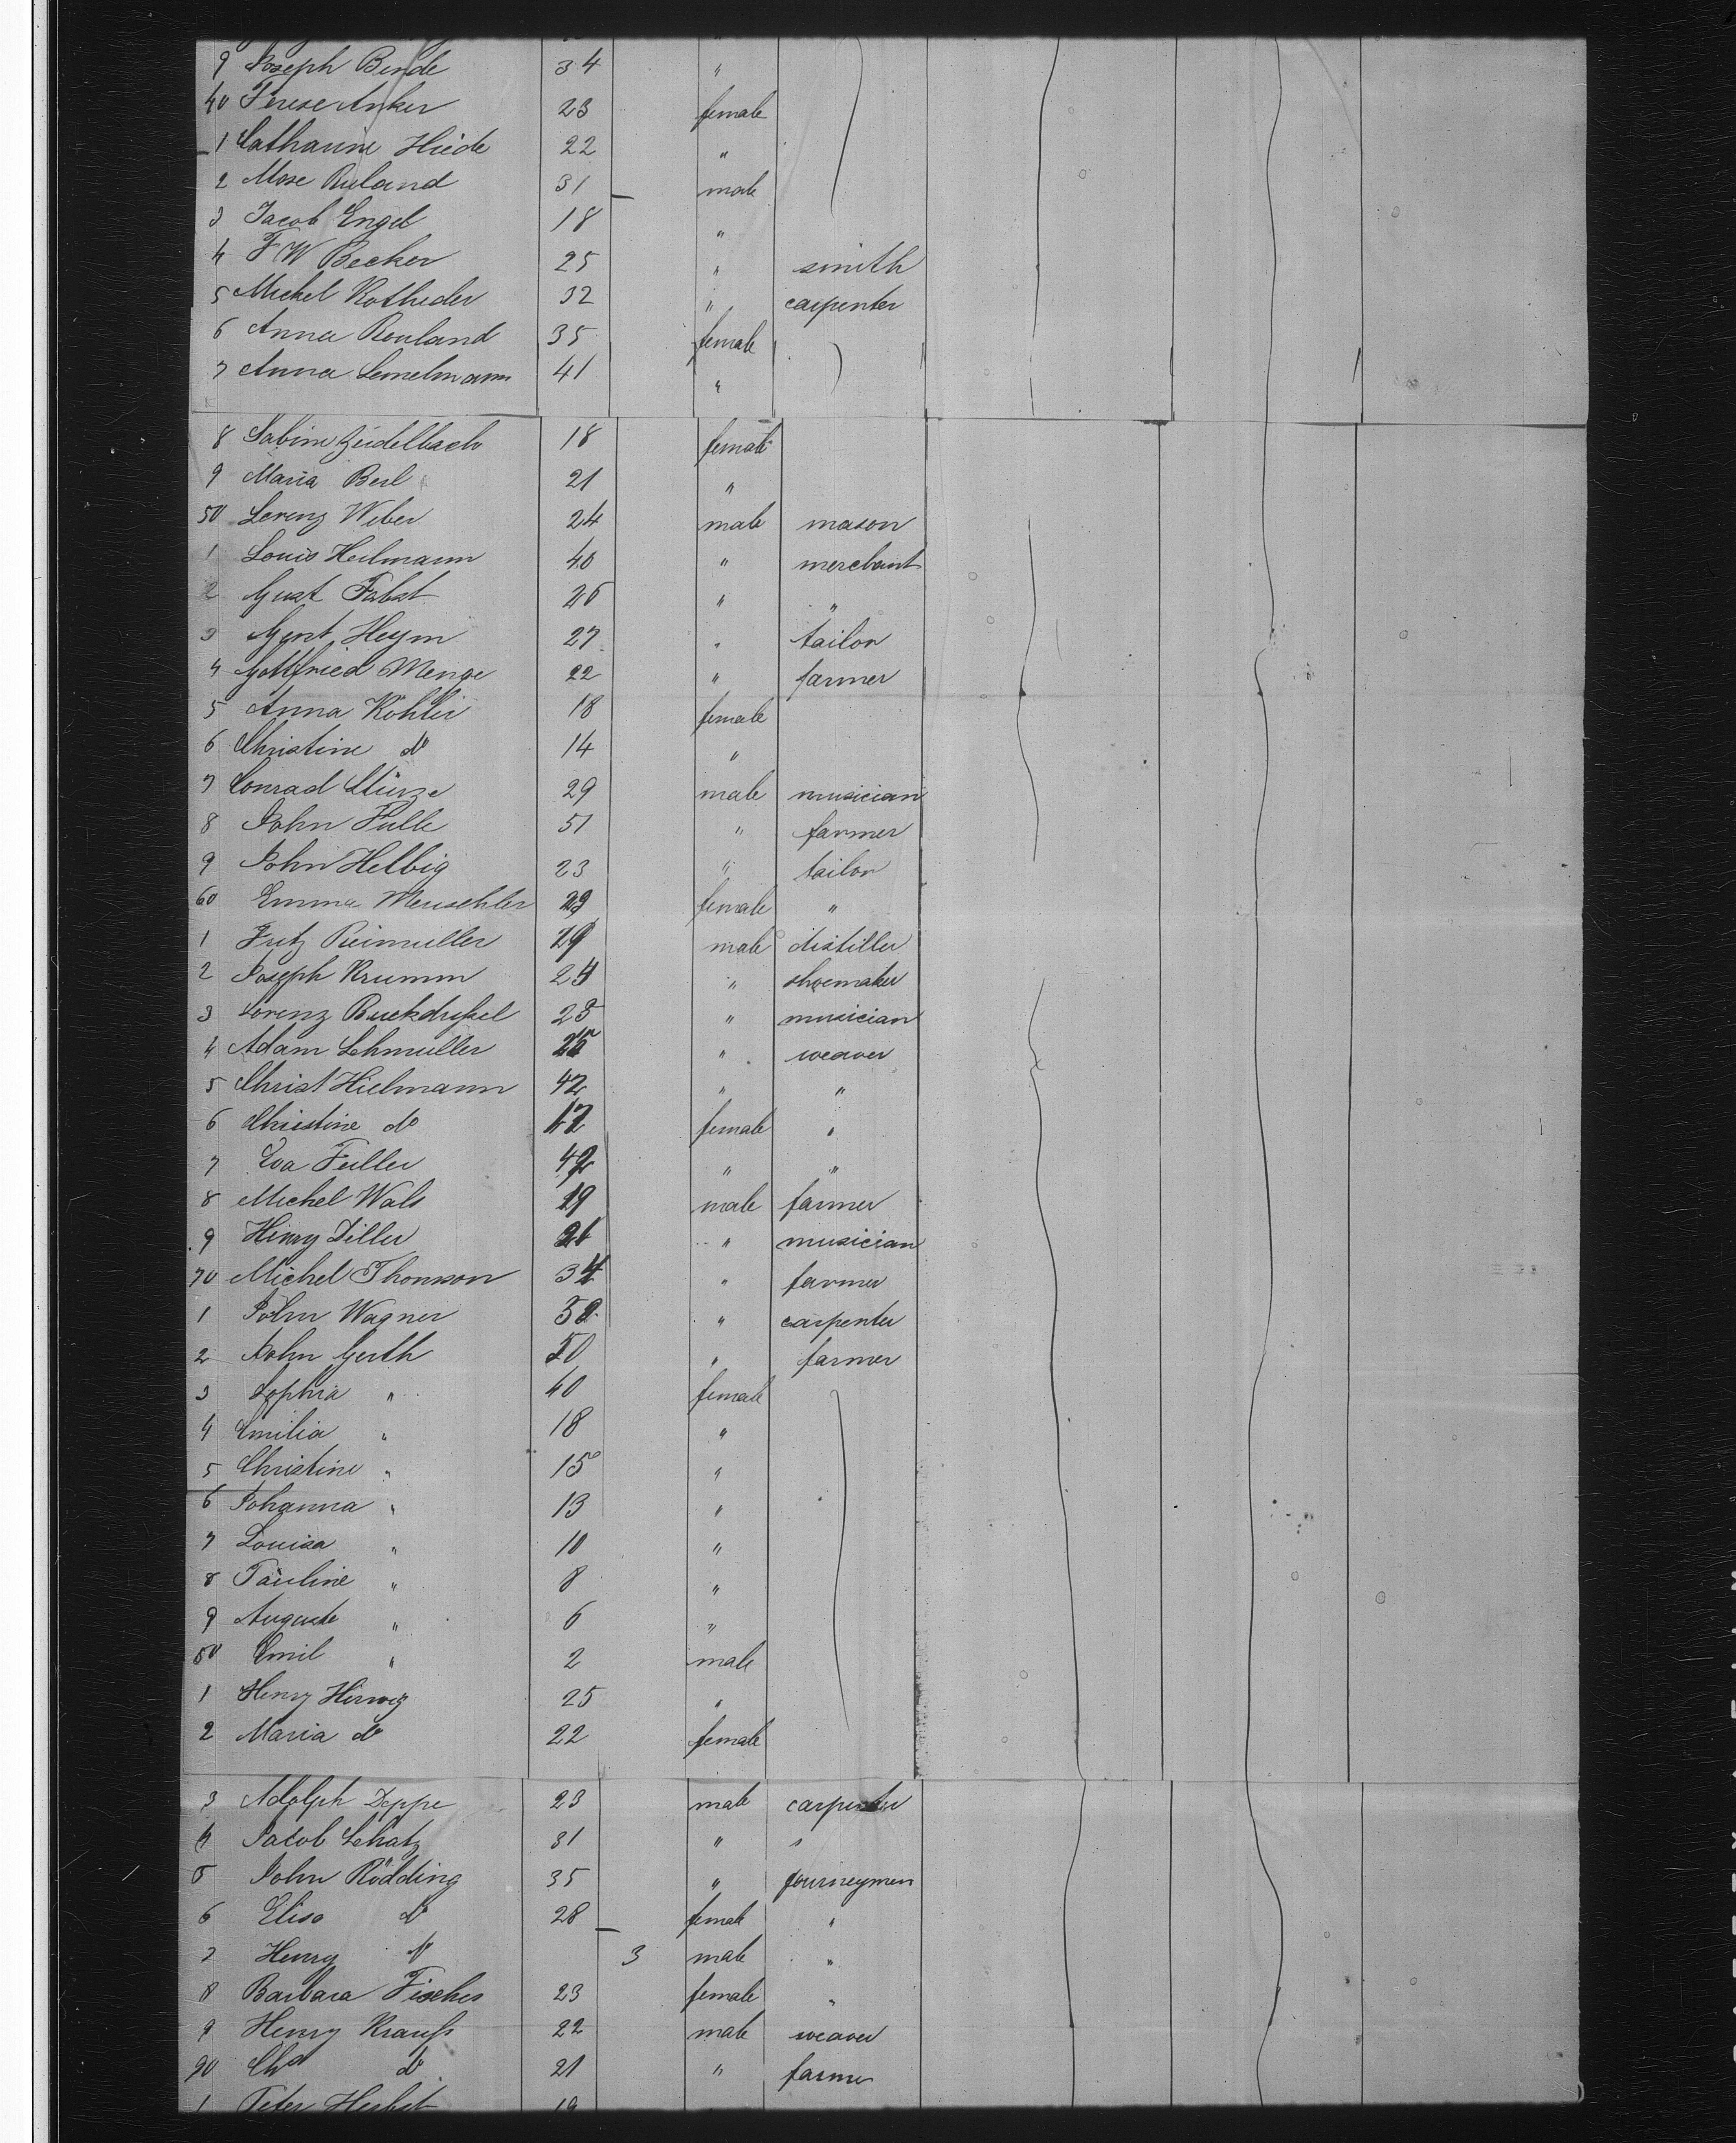 9 Joseph Bende 34 "
40 Terese Anker 23 female
1 Catharine Hiede 22 "
2 Mose Ruland 31 male
3 Jacob Engel 18 "
4 F W Becker 25 " smith
5 Michel Kotheder 32 " carpenter
6 Anna Rouland 35 female
7 Anna Lemelmann 41 "
8 Sabine Zeidelbach 18 female
9 Maria Berl 21 "
50 Lorenz Weber 24 male mason
1 Louis Heilmann 40 " merchant
2 Gust Pabst 26 " "
3 Heym 27 " tailor
4 Gottfried Menge 22 " farmer
5 Anna Köhler 18 female
6 Christine do 14 "
7 Conrad Stürze 29 male musician
8 John Fulle 51 " farmer
9 John Helbig 23 " tailor
60 Emma Meuschler 29 female "
1 Fritz Reimuller 29 male distiller
2 Joseph Krumm 24 " shoemaker
3 Lorenz Buckdreßel 25 " musician
4 Adam Schmuller 25 " weaver
5 Christ Hielmann 42 " "
6 Christine do 17 female "
7 Eva Fuller 42 " "
8 Michel Wals 19 male farmer
9 Henry Diller 21 " musician
70 Michel Thomson 34 " farmer
1 John Wagner " carpenter
2 John Gerth 50 " farmer
3 Sophia " 40 female
4 Emilia " 18 "
5 Christine " 15 "
6 Johanna " 13 "
7 Louisa " 10 "
8 Pauline " 8 "
9 Auguste " 6 "
80 Emil " 2 male
1 Henry Herwig 25 "
2 Maria do 22 female
3 Adolph Deppe 23 male carpenter
4 Jacob Schatz 31 " "
5 John Rödding 35 " journeymen
6 Elise do 28 female "
7 Henry do 3 male "
8 Barbara Fischer 23 female "
9 Henry Krauß 22 male weaver
90 Chd do 21 " farmer
1 Peter Herbst 19